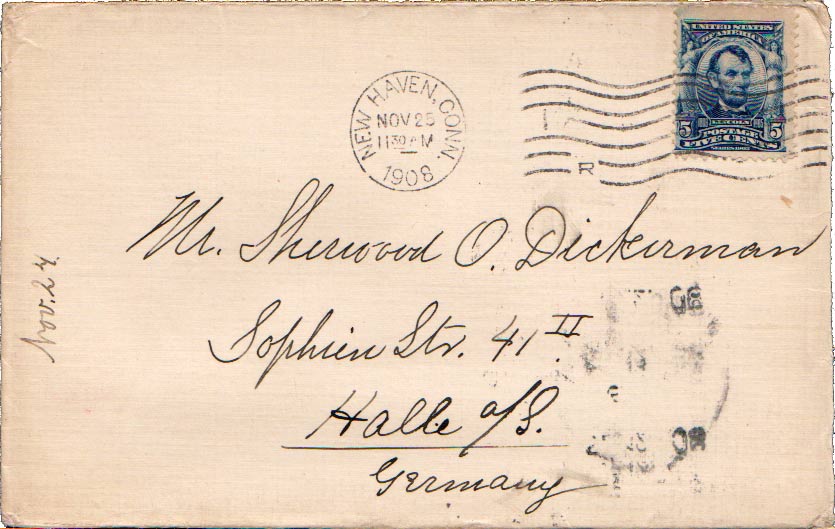 NEW HAVEN, CONN.
NOV 25
11 30 AM
1908
R
UNITED STATES
OF AMERICA
LINCOLN
5 POSTAGE 5
FIVE CENTS
SERIES 1902
Mr. Sherwood O. Dickerman
Sophien Str. 41 II.
Halle a/S.
Germany
Nov. 24
08
08